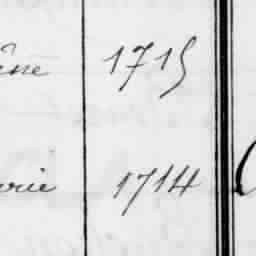 ène 1715
arie 1714